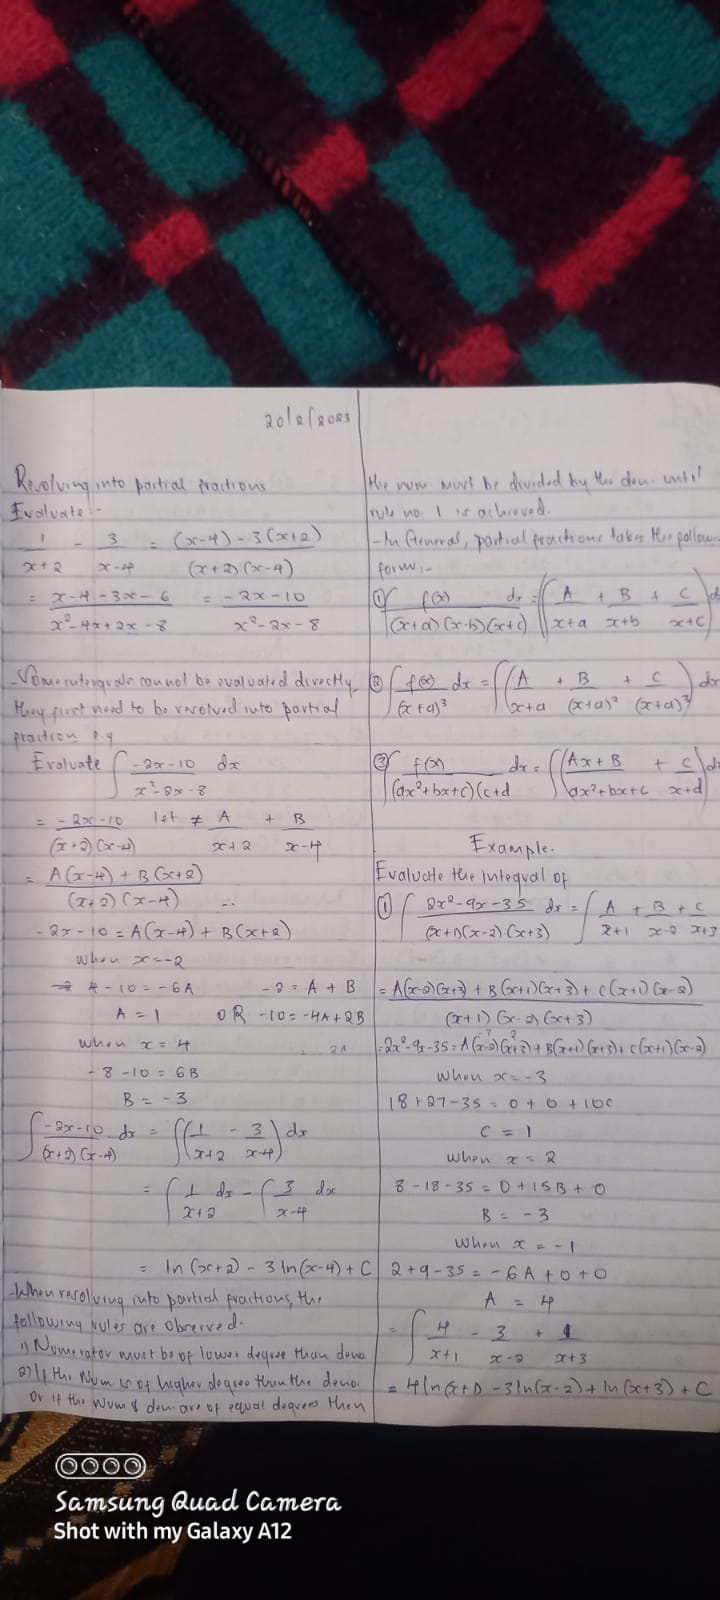 20/2/2023
Resolving into partial fractions
Evaluate:-
1/(x+2) - 3/(x-4) = ((x-4) - 3(x+2))/((x+2)(x-4))
= (x-4-3x-6)/(x²-4x+2x-8) = (-2x-10)/(x²-2x-8)
-Some integrals cannot be evaluated directly,
they first need to be resolved into partial
fraction e.g
Evaluate ∫ (-2x-10)/(x²-2x-8) dx
= (-2x-10)/((x+2)(x-4)) let ≠ A/(x+2) + B/(x-4)
= (A(x-4) + B(x+2))/((x+2)(x-4))
-2x-10 = A(x-4) + B(x+2)
when x=-2
4-10 = -6A -2 = A + B
A = 1 OR -10 = -4A+2B
when x = 4
-8-10 = 6B
B = -3
∫ (-2x-10)/((x+2)(x-4)) dx = ∫(1/(x+2) - 3/(x-4)) dx
= ∫ 1/(x+2) dx - ∫ 3/(x-4) dx
= ln(x+2) - 3ln(x-4) + C
-When resolving into partial fractions, the
following rules are observed.
1) Numerator must be of lower degree than deno
2) If the Num is of higher degree than the deno.
Or if the Num & den. are of equal degrees then
the num must be divided by the den. until
rule no. 1 is achieved.
-In General, partial fractions takes the follow
form:-
① ∫ f(x)/((x+a)(x-b)(x+c)) dx = ∫(A/(x+a) + B/(x+b) + C/(x+c)) d
② ∫ f(x)/(x+a)³ dx = ∫(A/(x+a) + B/(x+a)² + C/(x+a)³) dx
③ ∫ f(x)/((ax²+bx+c)(c+d) dx = ∫((Ax+B)/(ax²+bx+c) + C/(x+d)) d
Example.
Evaluate the integral of
① ∫ (2x²-9x-35)/((x+1)(x-2)(x+3)) dx = ∫ A/(x+1) + B/(x-2) + C/(x+3)
= (A(x-2)(x+3) + B(x+1)(x+3) + C(x+1)(x-2))/((x+1)(x-2)(x+3))
=2x²-9x-35 = A(x-2)(x+3) + B(x+1)(x+3) + C(x+1)(x-2)
When x=-3
18+27-35 = 0+0+10C
C = 1
when x = 2
8-18-35 = 0+15B+0
B = -3
when x = -1
2+9-35 = -6A+0+0
A = 4
= ∫ 4/(x+1) - 3/(x-2) + 1/(x+3)
= 4ln(x+1) - 3ln(x-2) + ln(x+3) + C
Samsung Quad Camera
Shot with my Galaxy A12